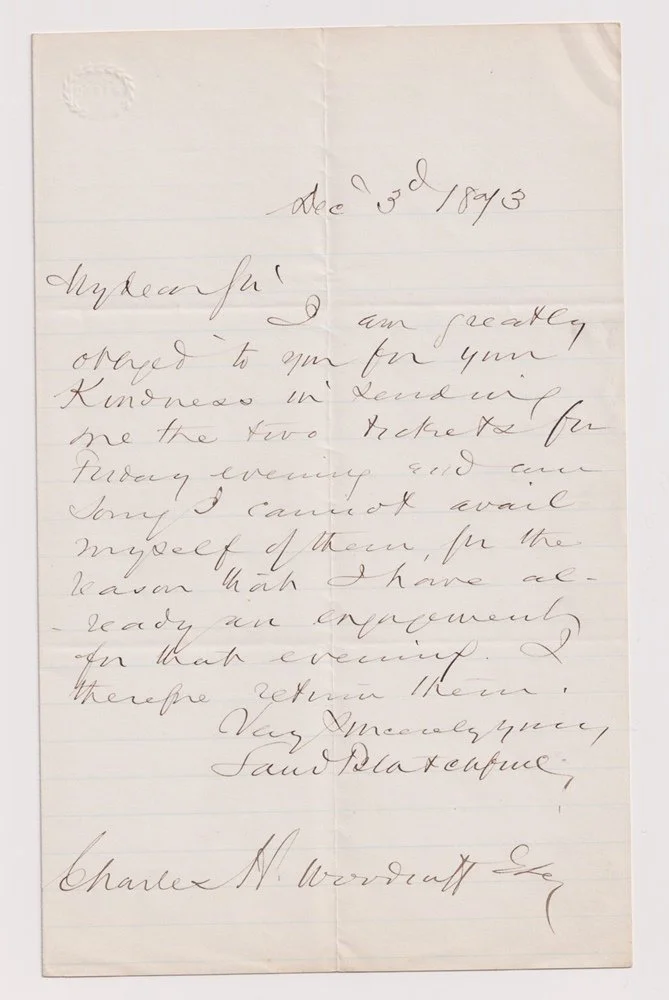 Decr 3d 1873
My dear Sir,
I am greatly
obliged to you for your
Kindness in sending
me the two tickets for
Friday evening and am
sorry I cannot avail
myself of them, for the
reason that I have al-
-ready an engagement
for that evening. I
therefore return them.
Very sincerely yours,
Saml Blatchford,
Charles H. Woodruff Esq